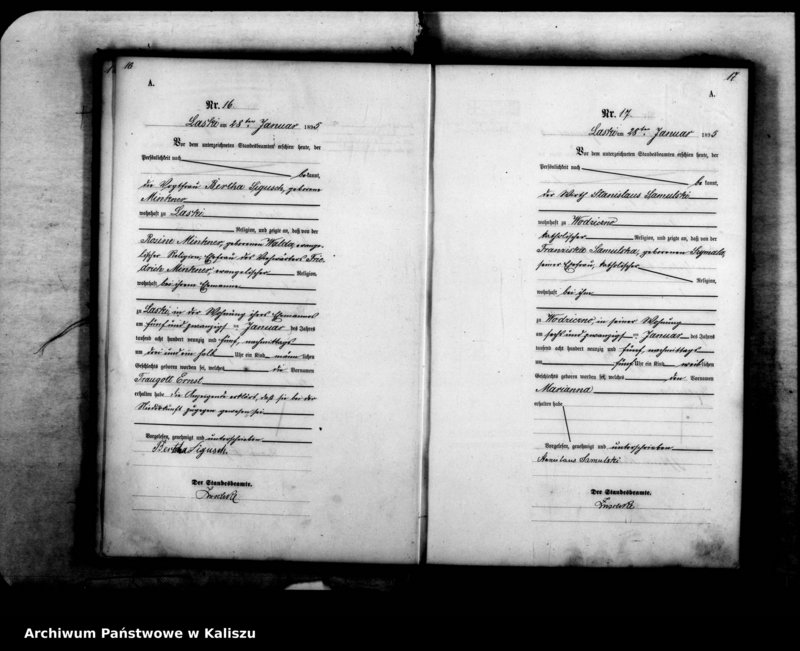 16
A.
Nr. 16
Laski am 28ten Januar 1895
Vor dem unterzeichneten Standesbeamten erschien heute, der
Persönlichkeit nach
bekannt,
die Vogtfrau Bertha Sigusch, geborene
Minkner
wohnhaft zu Laski
Religion, und zeigte an, daß von der
Rosine Minkner, geborenen evange-
lischer Religion, Ehefrau des Frie-
drich Minkner, evangelischer Religion,
wohnhaft bei ihrem Ehemanne
zu Laski, in der Wohnung ihres Ehemannes
am fünf und zwanzigsten Januar des Jahres
tausend acht hundert neunzig und fünf, nachmittags
um drei und ein halb Uhr ein Kind männlichen
Geschlechts geboren worden sei, welches die Vornamen
Traugott Ernst
erhalten habe. Die Anzeigende erklärt, daß sie bei der
Niederkunft zugegen gewesen sei
Vorgelesen, genehmigt und unterschrieben
Bertha Sigusch.
Der Standesbeamte.
17
A.
Nr. 17
Laski am 28ten Januar 1895
Vor dem unterzeichneten Standesbeamten erschien heute, der
Persönlichkeit nach
bekannt,
der Wirth Stanislaus Samulski
wohnhaft zu Wodziczno
katholischer Religion, und zeigte an, daß von der
Franziska Samulska, geborenen
seiner Ehefrau, katholischer
Religion,
wohnhaft bei ihm
zu Wodziczno, in seiner Wohnung
am sechs und zwanzigsten Januar des Jahres
tausend acht hundert neunzig und fünf, nachmittags
um fünf Uhr ein Kind weiblichen
Geschlechts geboren worden sei, welches den Vornamen
Marianna
erhalten habe
Vorgelesen, genehmigt und unterschrieben
Samulski
Der Standesbeamte.
Archiwum Państwowe w Kaliszu